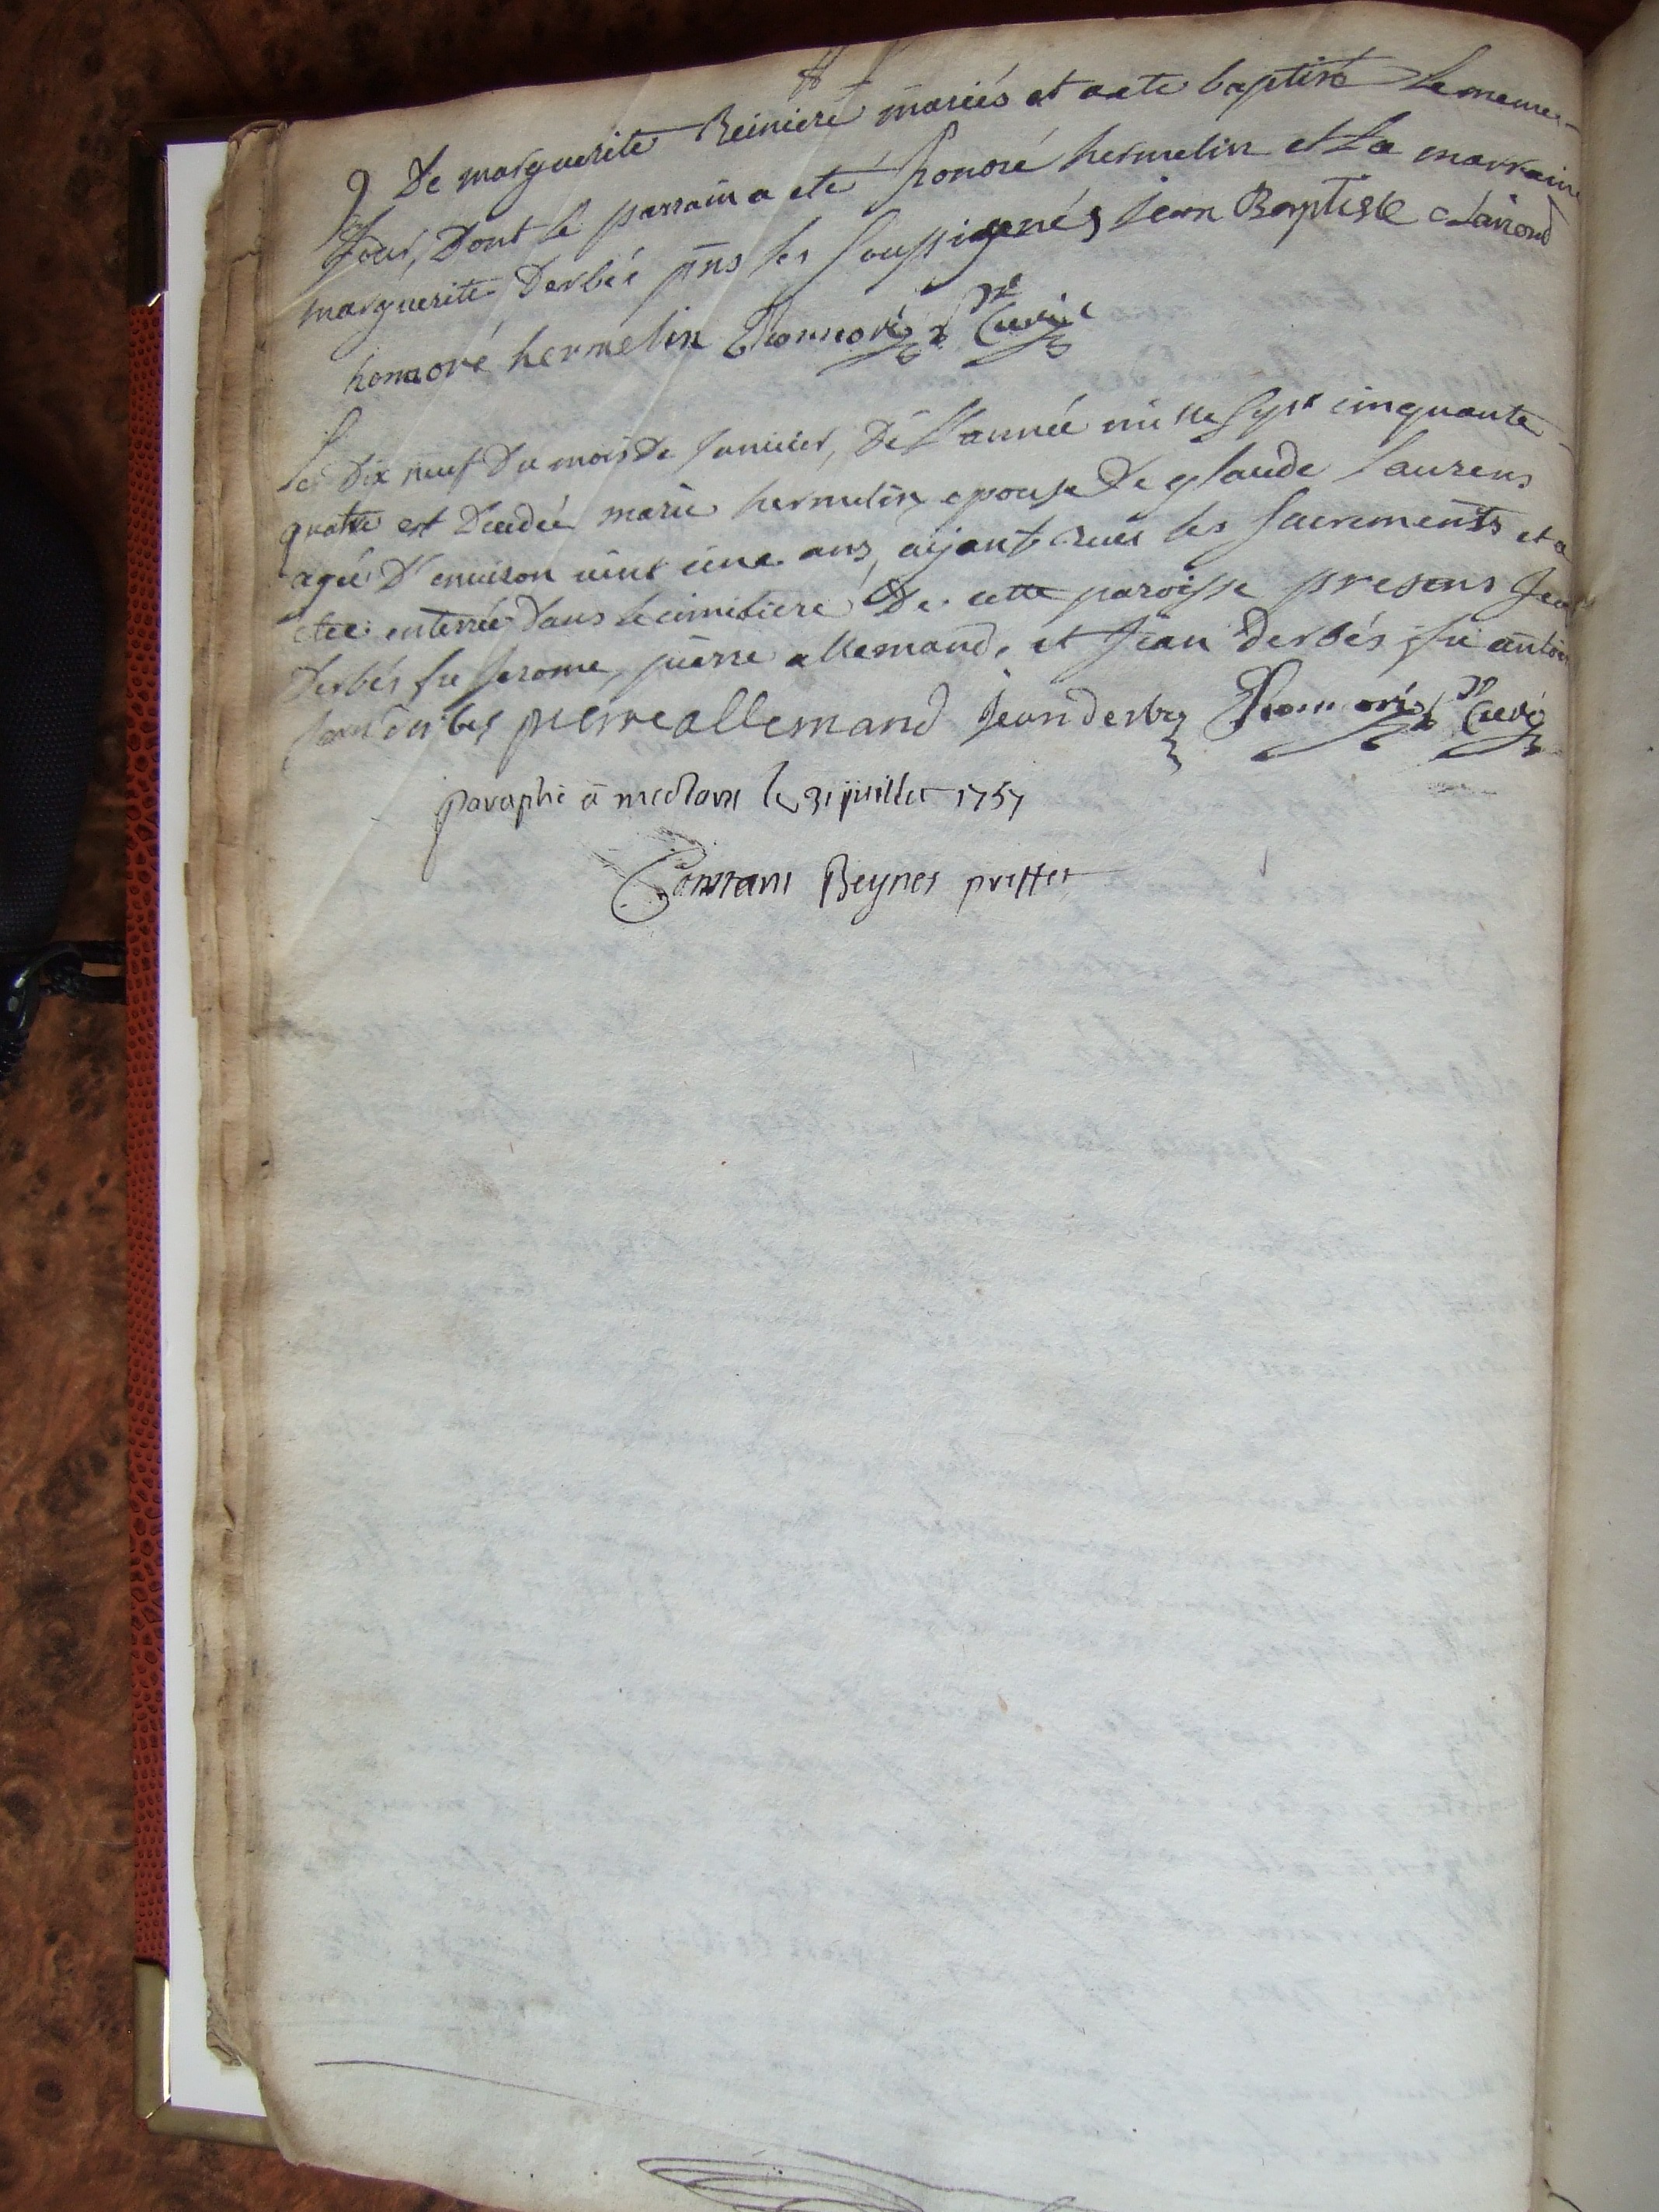 De marguerite Reiniere mariés et a ete baptisé le meme
jour, Dont le parrain a eté honoré hermelin et La marraine
marguerite Derbés pns les soussignés jean Baptiste
honnoré hermelin Curé
Le Dix neuf Du mois De Janvier, De L'année mille sept cinquante
quatre est Decedée marie hermelin epouse De glaude Laurens
agée D'environ vint cinc ans, aijant recus les sacrements et a
etee enterrée Dans le cimitiere De cette paroisse presens Jean
Derbés fu Jerome, pierre allemand, et Jean Derbés fu antoine
jean derbes pierre allemand Jean derbes Curé
paraphé a le 31 juillet 1757
Constans Beynes